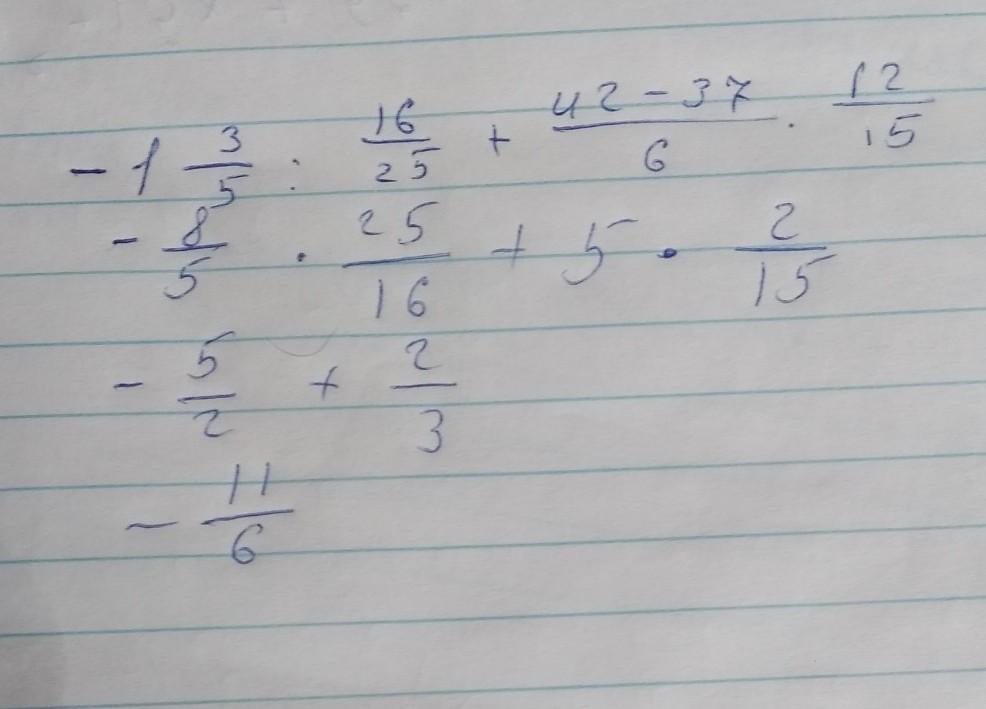 - 1 3/5 : 16/25 + (42-37)/6 · 12/15
- 8/5 · 25/16 + 5 · 2/15
- 5/2 + 2/3
- 11/6